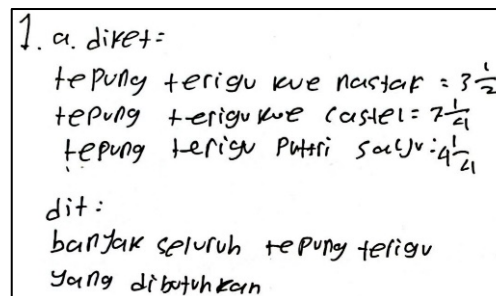 1. a. diket =
tepung terigu kue nastar = 3 1/2
tepung terigu kue castel = 2 1/4
tepung terigu putri salju : 4 1/4
dit :
banyak seluruh tepung terigu
yang dibutuhkan